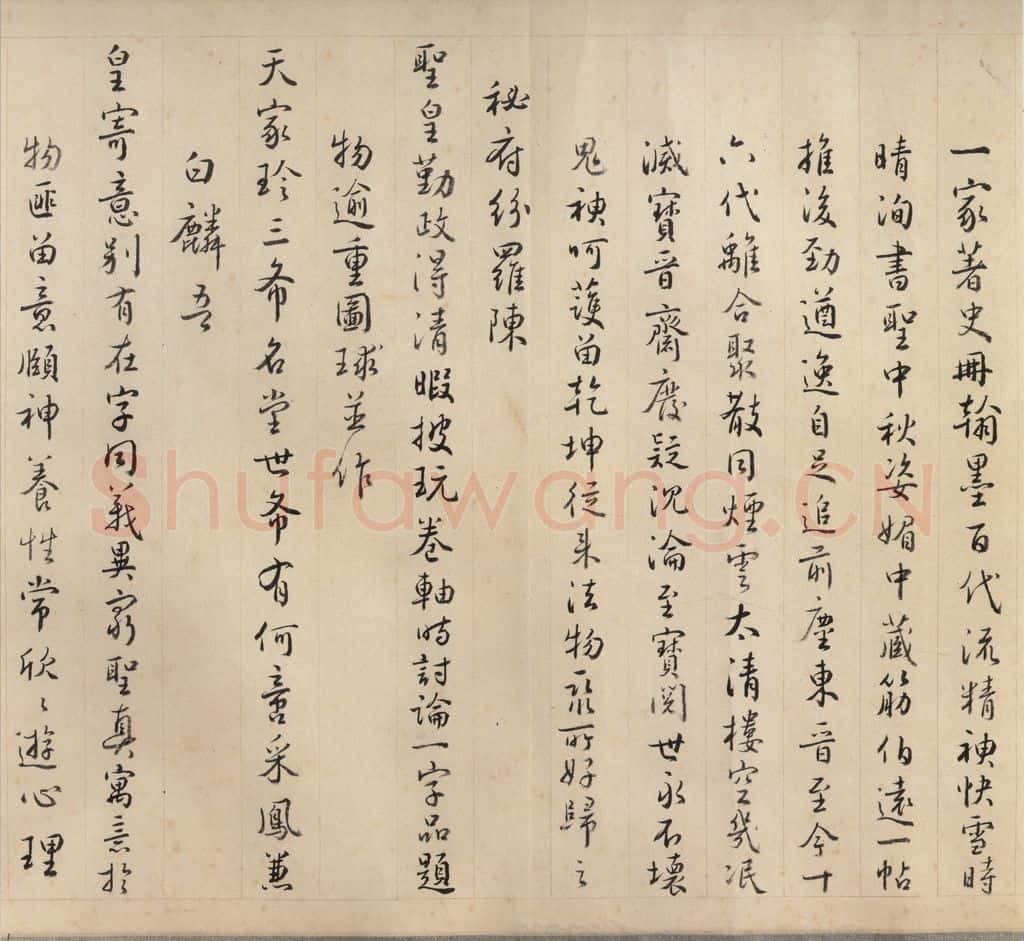 一家著史冊翰墨百代流精神快雪時
晴洵書聖中秋姿媚中藏筋伯遠一帖
推後勁遒逸自足追前塵東晉至今十
六代離合聚散同煙雲太清樓空幾泯
滅寶晉齋廢疑沉淪至寶閱世永不壞
鬼神呵護留乾坤從來法物聚所好歸之
秘府紛羅陳
聖皇勤政得清暇披玩卷軸時討論一字品題
物逾重圖球並作
天家珍三希名堂世希有何啻采鳳兼
白麟吾
皇寄意別有在字同義異窮聖真寓意於
物匪留意頤神養性常欣欣遊心理
Shufawang.CN